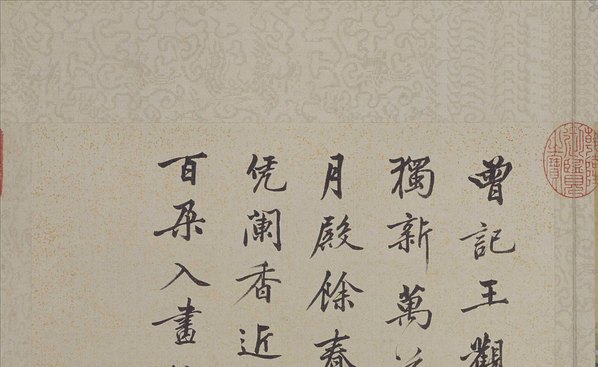 曾記王觀
獨新萬
月殿餘春
凭闌香近
百朵入畫